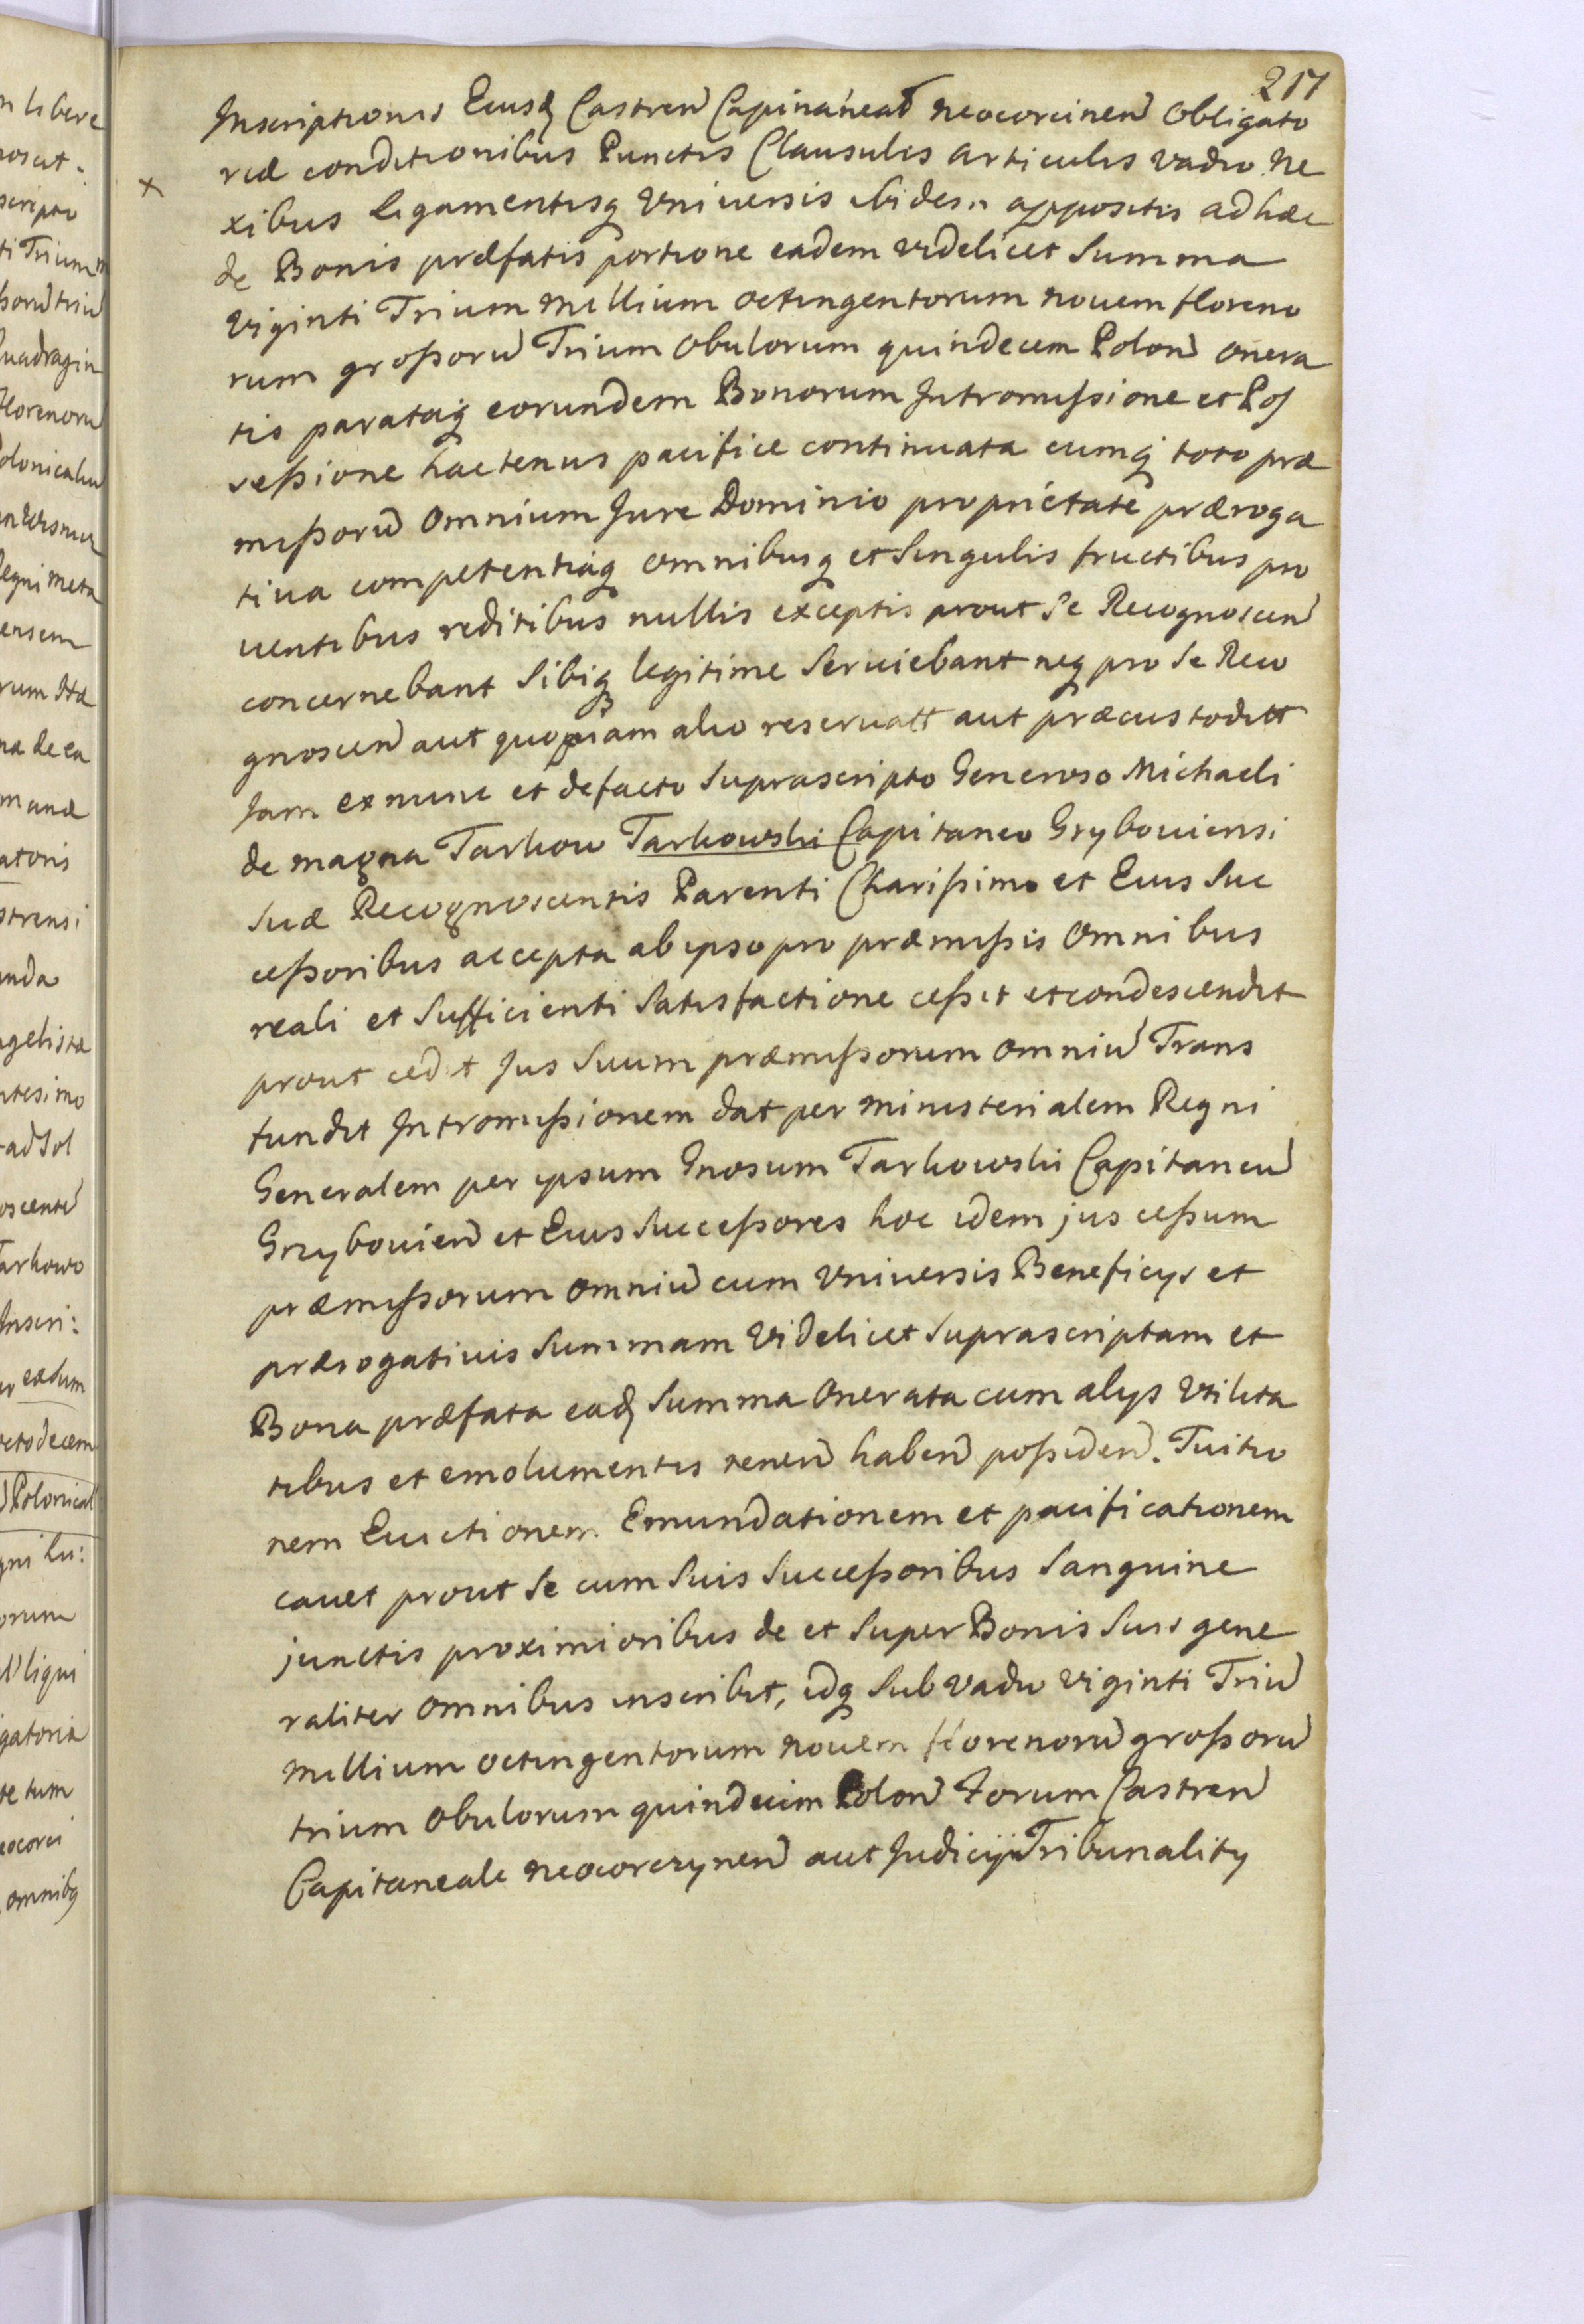 217
Inscriptionis Eiusq Castren Capinaneat Neocorcinen Obligato
riæ conditionibus Punctis Clausulis articulis vadio Ne
xibus ligamentisq Vniuersis ibidem appositis ad hæc
de Bonis præfatis portione eadem videlicet Summa
Viginti Trium Millium octingentorum Nouem floreno
rum großorũ Trium Obulorum quindecem Polon onera
tis parataq eorundem Bonorum Intromißione et Pos
seßione hactenus pacifice continuata cumq toto præ
mißorũ Omnium Jure Dominio proprietate præroga
tiua competentiaq omnibusq et Singulis fructibus pro
uentibus reditibus nullis exceptis prout Se Recognoscen
concernebant Sibiq legitime Seruiebant neq pro Se Reco
gnoscen aut quopiam alio reseruatt aut præcustoditt
Jam exnunc et defacto Suprascripto Generoso Michaeli
de magna Tarkow Tarkowski Capitaneo Grybouiensi
Suæ Recognoscentis Parenti Charißimo et Eius Suc
ceßoribus accepta ab ipso pro præmißis Omnibus
reali et Sufficienti Satisfactione ceßit et condescendit
prout cedit Jus Suum præmißorum omniũ Trans
fundit Intromißionem dat per ministerialem Regni
Generalem per ipsum Gnosum Tarkowski Capitaneũ
Grzybouien et Eius Succeßores hoc idem jus ceßum
præmißorum omniũ cum Vniuersis Beneficijs et
prærogatiuis Summam Videlicet Suprascriptam et
Bona præfata eadq Summa Onerata cum alijs Vtilita
tibus et emolumentis tenen haben poßiden. Tuitio
nem Euictionem Emundationem et pacificationem
cauet prout Se cum Suis Succeßoribus Sanguine
junctis proximioribus de et Super Bonis Suis gene
raliter Omnibus inscribit, idq Sub Vadio Viginti Triũ
Millium octingentorum Nouem florenorũ großorũ
trium Obulorum quindecim Polon Forum Castren
Capitaneale Neocorczynen aut Judicij Tribunality